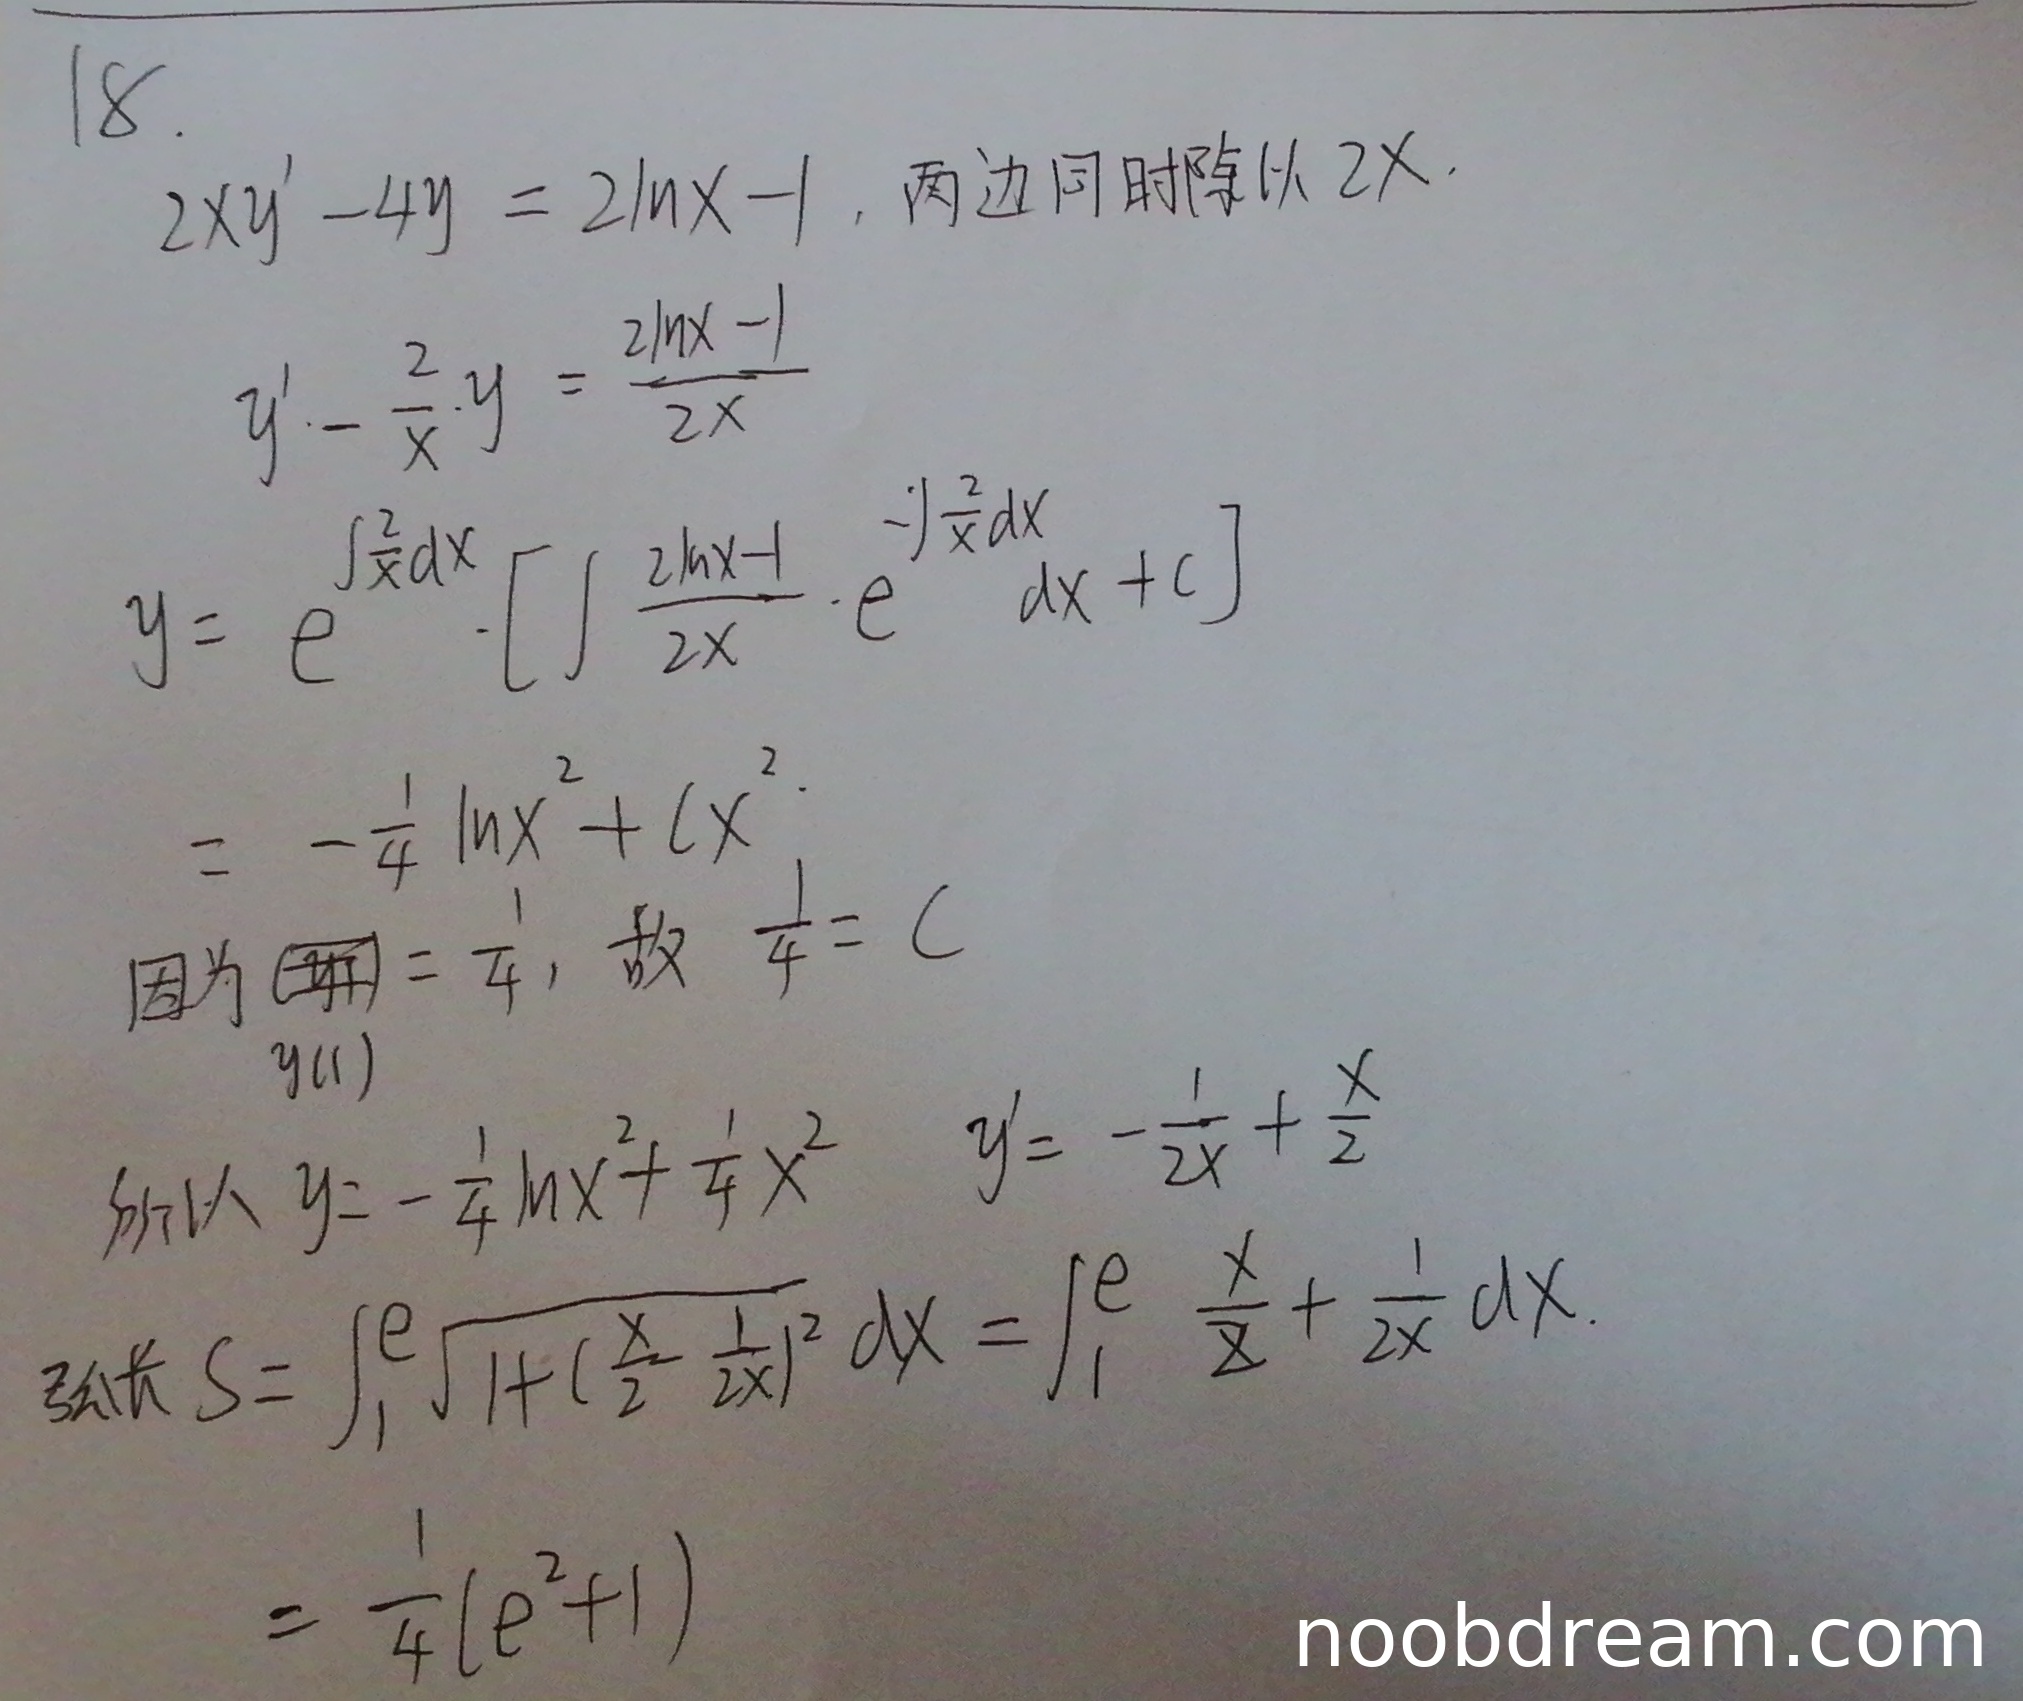 18.
2xy' - 4y = 2lnx - 1, 两边同时除以 2x.
y' - 2/x · y = (2lnx - 1)/(2x)
y = e^(∫ 2/x dx) · [∫ (2lnx - 1)/(2x) · e^(-∫ 2/x dx) dx + C]
= -1/4 lnx² + Cx².
因为 y(1) = 1/4, 故 1/4 = C
所以 y = -1/4 lnx² + 1/4 x² y' = -1/(2x) + x/2
弧长 S = ∫₁^e √(1+(x/2 - 1/(2x))²) dx = ∫₁^e x/2 + 1/(2x) dx.
= 1/4(e²+1)
noobdream.com